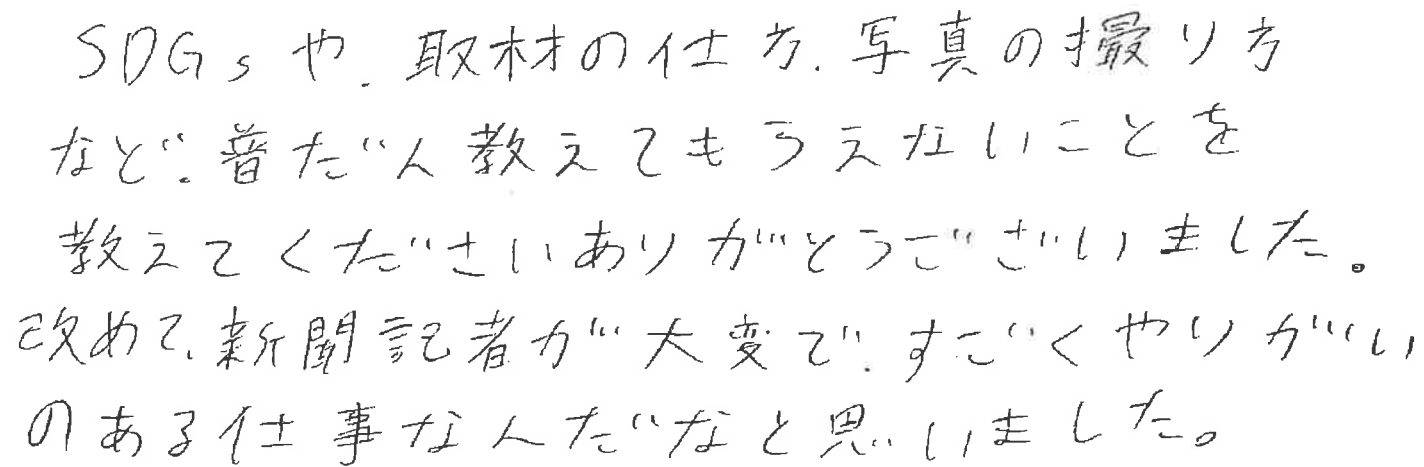 SDGsや、取材の仕方、写真の撮り方
など、普だん教えてもらえないことを
教えてくださいありがとうございました。
改めて、新聞記者が大変で、すごくやりがい
のある仕事なんだなと思いました。